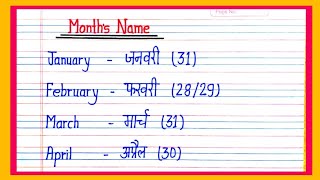 Month's Name
January - जनवरी (31)
February - फरवरी (28/29)
March - मार्च (31)
April - अप्रैल (30)